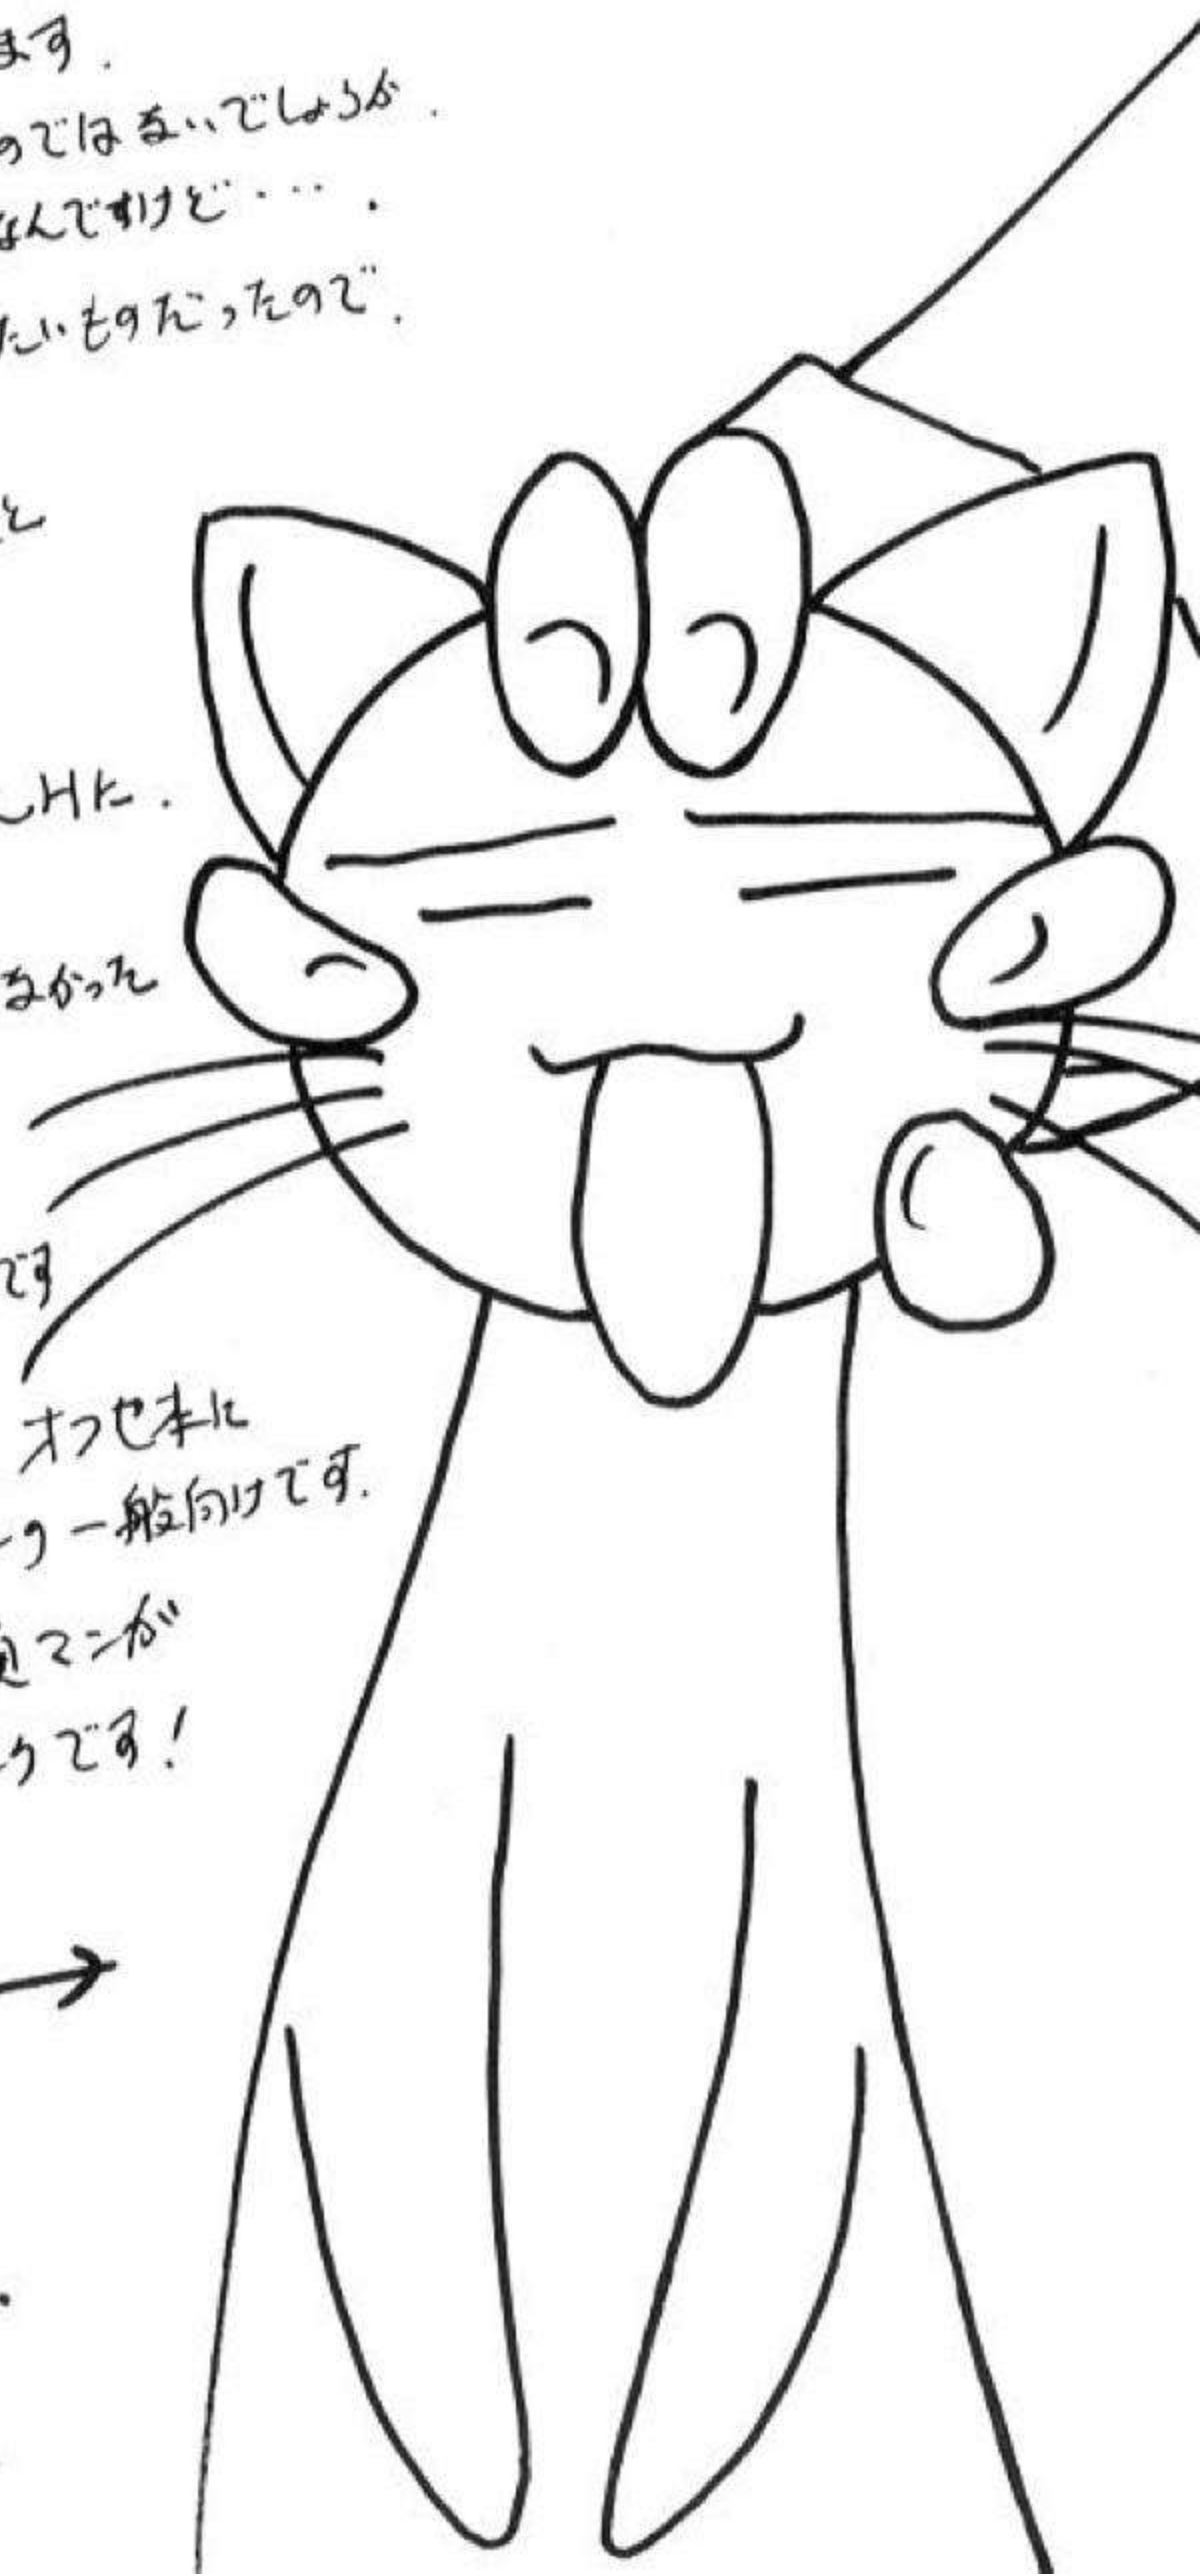 ます.
のではないでしょうか.
なんですけど・・・.
たいものだったので.
と
Hに.
なかった
です
オフセ本に
一般向けです.
マンガ
です!